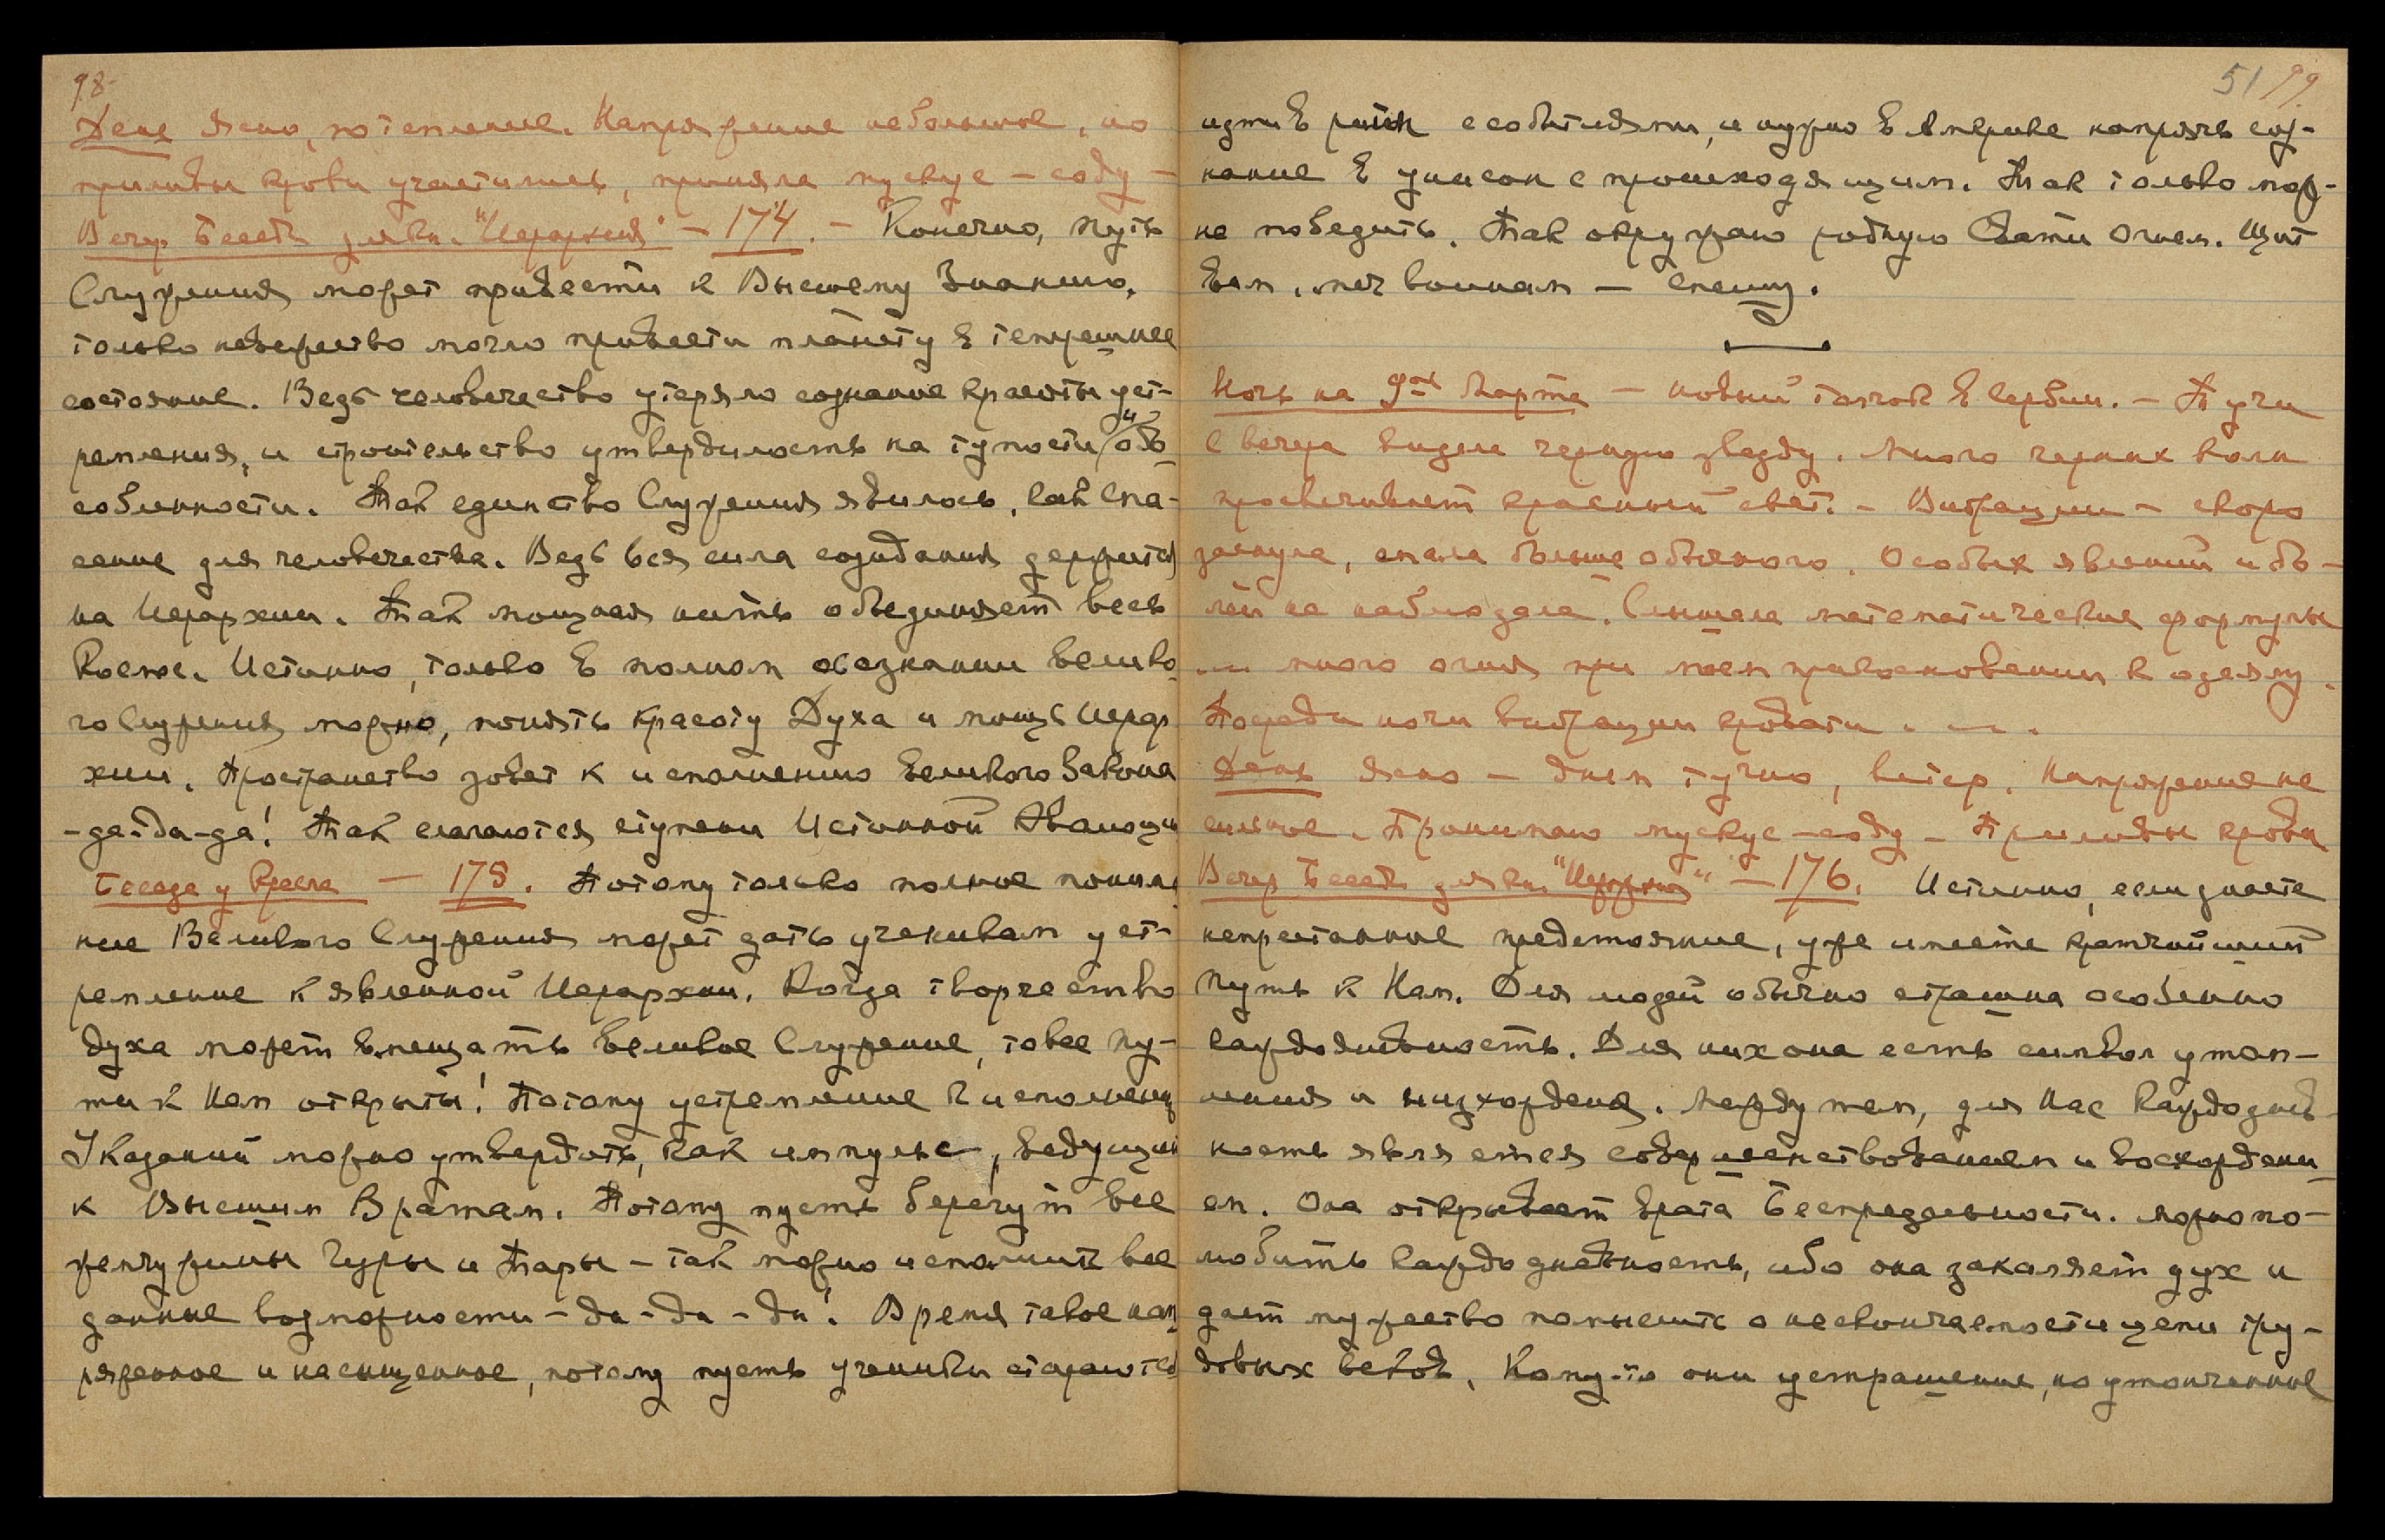 98
День Ясно, потепление. Напряжение небольшое, но
приливы крови участились, приняла мускус – соду –
Вечер. Беседа для кн. "Иерархия" – 174. – Конечно, путь
Служения может привести к Высшему Знанию,
только невежество могло привести планету в теперешнее
состояние. Ведь человечество утеряло сознание красоты уст-
ремления, и строительство утвердилось на тупости и обо-
собленности. Так единство Служения явилось, как Спа-
сение для человечества. Ведь вся сила созидания держится
на Иерархии. Так мощная нить объединяет весь
Космос. Истинно, только в полном осознании велико-
го Служения можно, понять красоту Духа и мощь Иерар-
хии. Пространство зовет к исполнению великого Закона
-да-да-да! Так слагаются ступени Истинной Эволюции
Беседа у Кресла – 175. Потому только полное понима-
ние Великого Служения может дать ученикам уст-
ремление к явленной Иерархии. Когда творчество
духа может вмещать великое Служение, то все пу-
ти к Нам открыты! Потому устремление к исполнению
Указаний можно утвердить, как импульс, ведущий
к Высшим Вратам. Потому пусть берегут все
жемчужины Гуры и Тары – так можно исполнить все
данные возможности – да – да – да! Время такое нап-
ряженное и насыщенное, потому пусть ученики стараются
51 99.
идти в ритм с событиями, и нужно в Америке напрячь соз-
нание в унисон с происходящим. Так только мож-
но победить. Так окружаю родную Свати Огнем. Щит
вам, меч воинам – спешу.
Ночь на 9ое Марта – новый толчок в Сербии. – Тучи
С вечера видела черную звезду. Много черных волн
просвечивает красный свет. – Вибрации – скоро
заснула, спала больше обычного. Особых явлений и бо-
лей не наблюдала. Слышала математические формулы
... много огня при моем прикосновении к одеялу.
Посреди ночи вибрации кровати . — .
День Ясно – днем тучно, ветер. Напряжение не
сильное. Принимаю мускус – соду – Приливы крови
Вечер Беседа для кн. "Иерархия" – 176. Истинно, если знаете
непрестанное предстояние, уже имеете кратчайший
путь к Нам. Для людей обычно страшна особенно
каждодневность. Для них она есть символ утом-
ления и низхождения. Между тем, для Нас каждоднев-
ность является совершенствованием и восхождени-
ем. Она открывает врата Беспредельности. Можно по-
любить каждодневность, ибо она закаляет дух и
дает мужество помыслить о нескончаемости цепи тру-
довых веков. Кому-то они устрашение, но утонченное